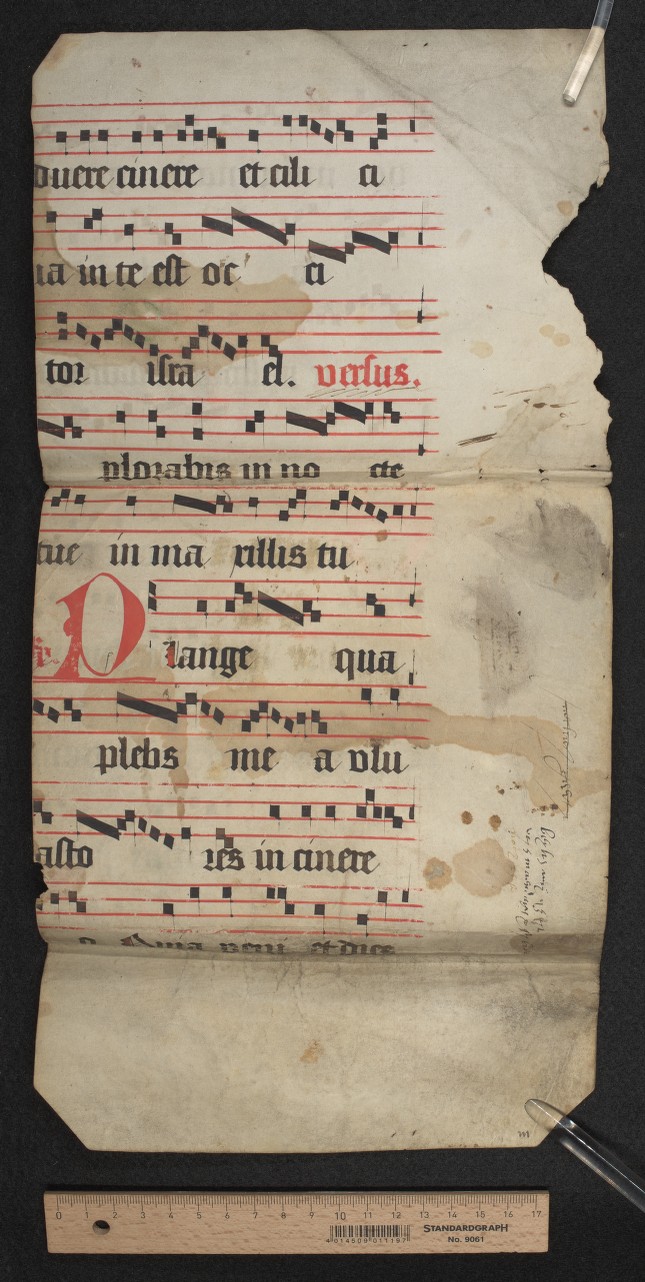 duere cinere et cili ci
ia in te est oc ci
tor isra el. versus.
plorabis in no cte
tue in ma xillis tu
Plange qua
plebs me a vlu
asto res in cinere
Quia veni et dies
0 1 2 3 4 5 6 7 8 9 10 11 12 13 14 15 16 17
STANDARDGRAPH
No. 9061
4 014509 011187